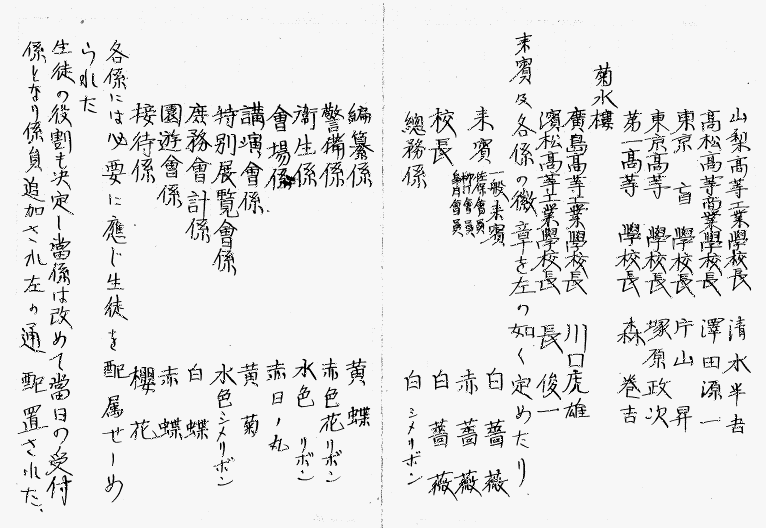 山梨高等工業學校長 清水半吾
高松高等商業學校長 澤田源一
東京盲學校長 片山昇
東京高等學校長 塚原政次
第一高等學校長 森巻吉
菊水樓
廣島高等工業學校長 川口虎雄
濱松高等工業學校長 長俊一
来賓及各係の徽章を左の如く定めたり
来賓 一般来賓 白薔薇
赤薔薇
校長 白薔薇
總務係 白シメリボン
編纂係 黄蝶
警備係 赤色花リボン
衛生係 水色リボン
會場係 赤日ノ丸
講演會係 黄菊
特別展覧會係 水色シメリボン
庶務會計係 白蝶
園遊會係 赤蝶
接待係 櫻花
各係には必要に應じ生徒を配属せしめ
られた
生徒の役割も決定し當係は改めて當日の受付
係となり係員追加され左の通配置された、